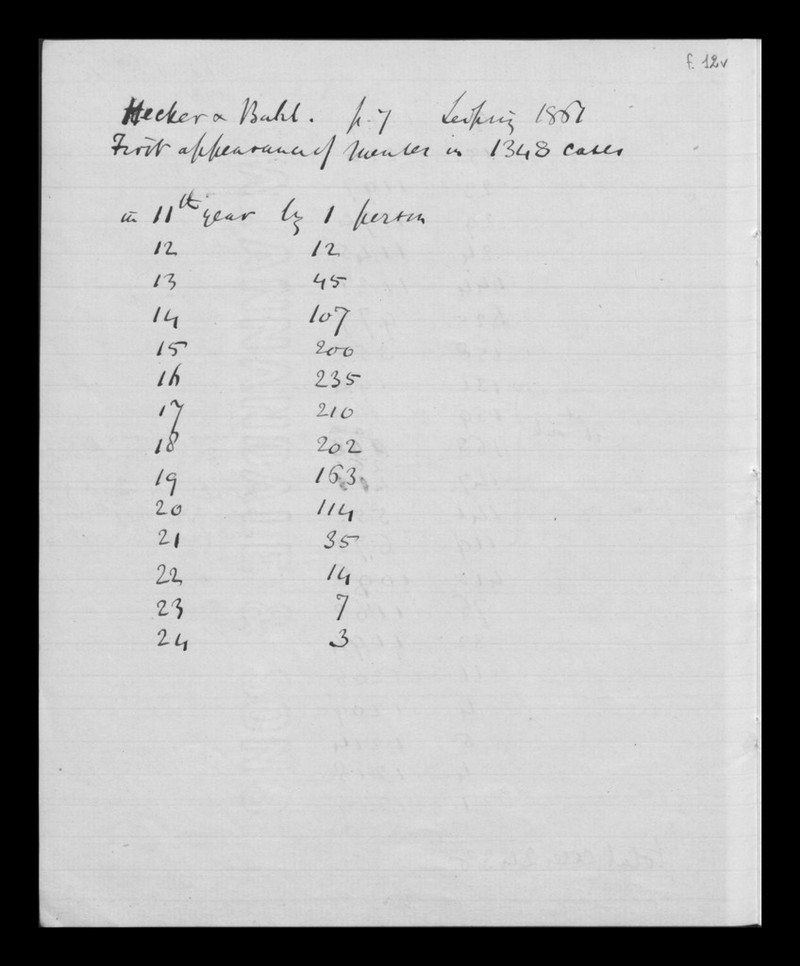 f. 12v
Hecker & Buhl. p. 7 Leipzig 1861
First appearance of menses in 1348 cases
in 11th year by 1 person
12 12
13 45
14 107
15 200
16 235
17 210
18 202
19 163
20 114
21 35
22 14
23 7
24 3